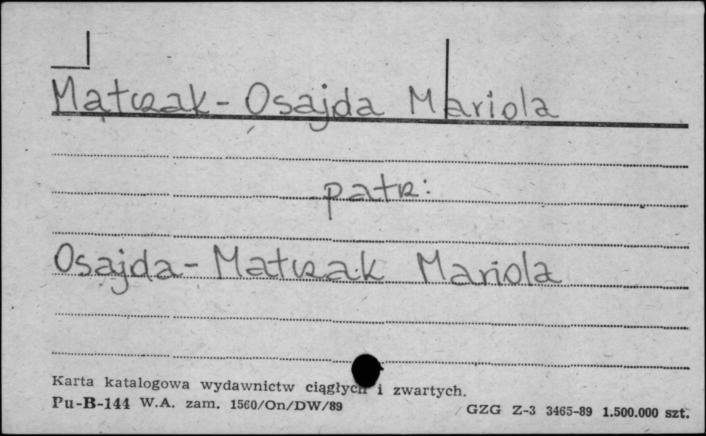 Matczak - Osajda Mariola
patrz:
Osajda - Matczak Mariola
Karta katalogowa wydawnictw ciągłych i zwartych.
Pu-B-144 W.A. zam. 1560/On/DW/89 GZG Z-3 3465-89 1.500.000 szt.